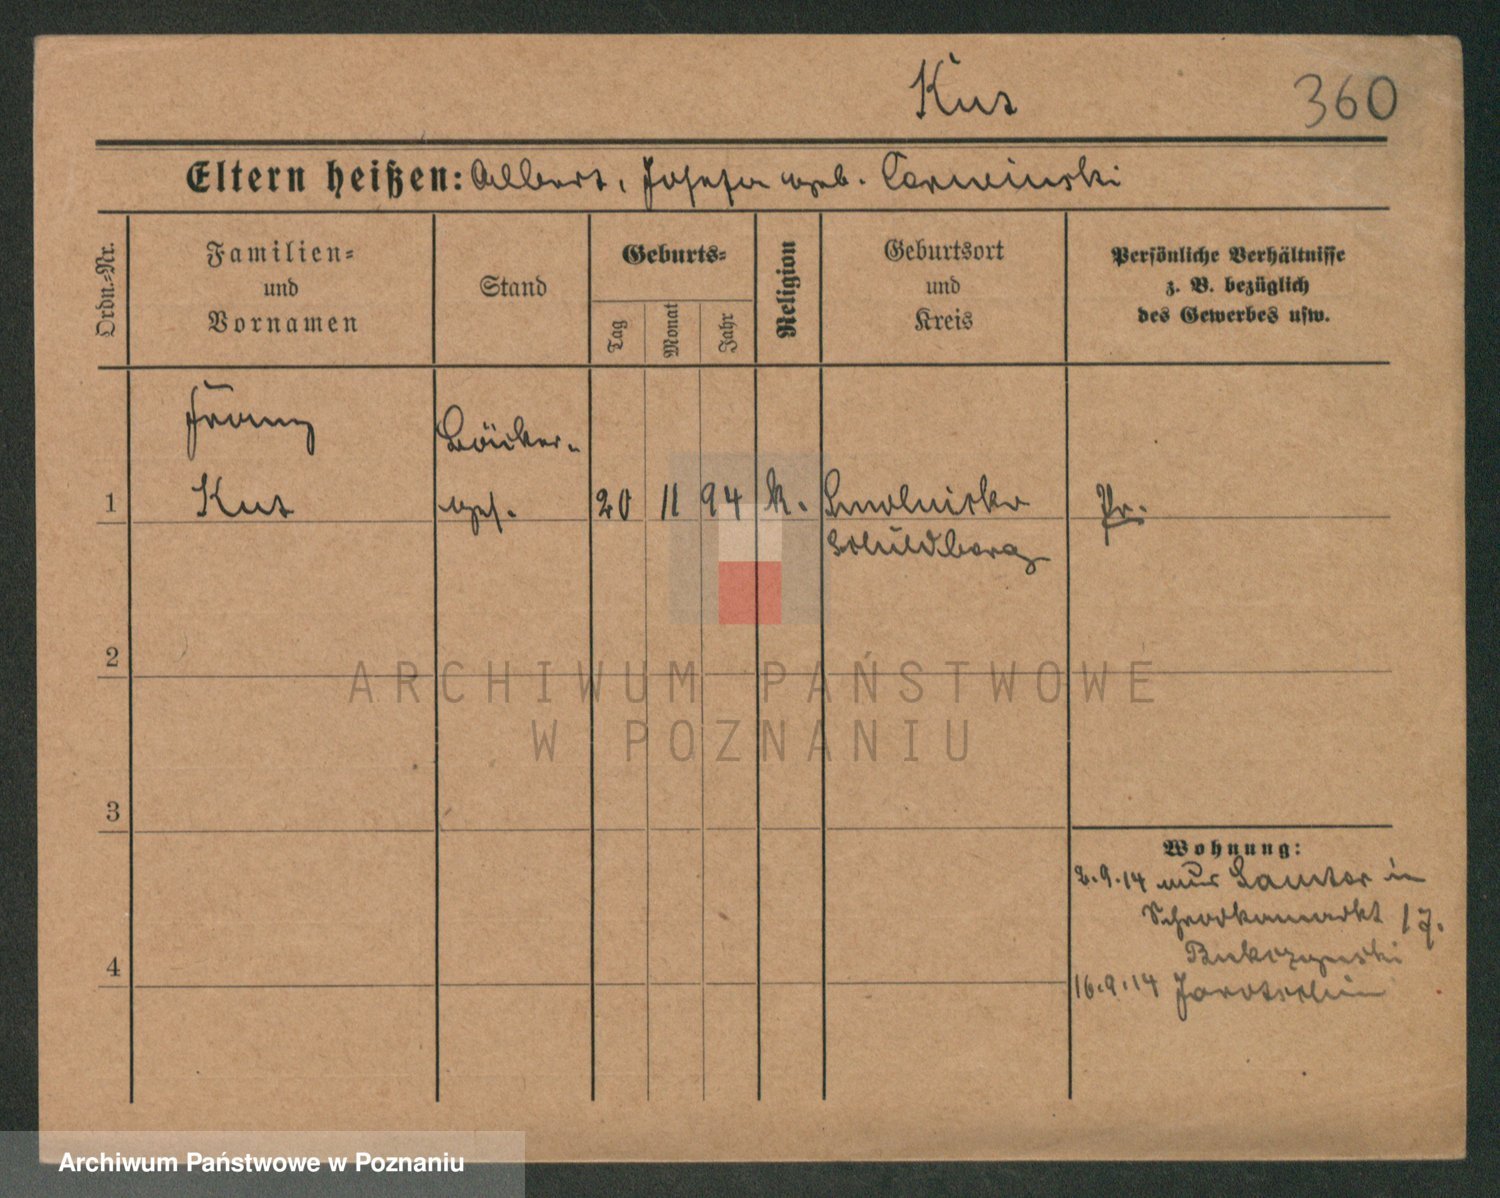 Kus
360
Eltern heißen: Albert, Josefa geb. Czerwinski
Ordn.-Nr.
Familien- und Vornamen
Stand
Geburts-
Tag
Monat
Jahr
Religion
Geburtsort und Kreis
Persönliche Verhältnisse
z. B. bezüglich
des Gewerbes usw.
Franz
Bäcker-
1
Kus
ges.
20
11
94
k.
Smolniska
Schildberg
Pr.
2
3
4
Wohnung:
2.9.14 aus Samter in
Schrodkamarkt 17.
16.9.14 Jarotschin
ARCHIWUM PAŃSTWOWE
W POZNANIU
Archiwum Państwowe w Poznaniu